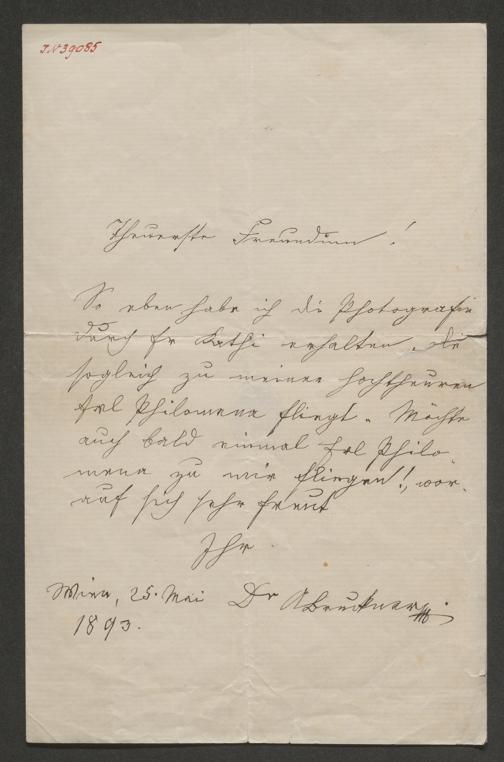 I.N 39085
Theuerste Freundinn!
So eben habe ich die Photografie
durch Fr Kathi erhalten, die
sogleich zu meiner hochtheuren
Frl Philomena fliegt. Möchte
auch bald einmal Frl Philo-
mena zu mir fliegen!, wor-
auf sich sehr freut
Ihr
Wien, 25. Mai Dr ABruckner
1893.